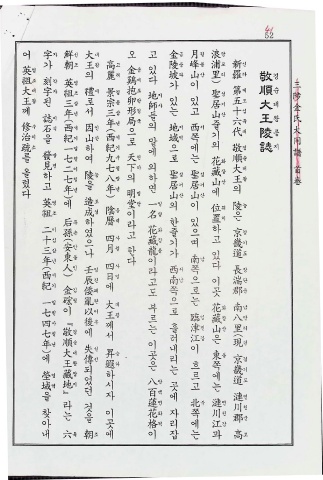 三陟金氏大同譜 首卷
敬順大王陵誌
경순대왕릉지
新羅 第五十六代 敬順大王의 陵은 京畿道 長湍郡 南八里(現 京畿道 漣川郡 高
浪浦里) 聖居山줄기의 花藏山에 位置하고 있다 이곳 花藏山은 東쪽에는 漣川江과
月峰山이 있고 西쪽에는 聖居山이 있으며 南쪽으로는 臨津江이 흐르고 北쪽에는
金陵坡가 있는 地域으로 聖居山의 한줄기가 西南쪽으로 흘러내리는 곳에 자리잡
고 있다 地師들의 말에 의하면 一名 花藏龍이라고도 부르는 이곳은 八百蓮花格이
오 金鷄抱卵形局으로 天下의 明堂이라고 한다
高麗 景宗三年(西紀九七八年) 陰曆 四月 四日에 大王께서 昇遐하시자 이곳에
大王의 禮로서 因山하여 陵을 造成하였으나 壬辰倭亂以後에 失傳되었던 것을 朝
鮮朝 英祖三年(西紀一七二七年)에 后孫(安東人) 金礭이 『敬順大王藏地』라는 六
字가 刻字된 誌石을 發見하고 英祖 二十三年(西紀 一七四七年)에 塋域을 찾아내
어 英祖大王께 修治疏를 올렸다